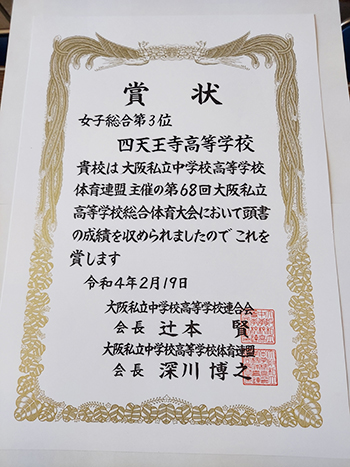 賞状
女子総合第3位
四天王寺高等学校
貴校は大阪私立中学校高等学校
体育連盟主催の第68回大阪私立
高等学校総合体育大会において頭書
の成績を収められましたのでこれを
賞します
令和4年2月19日
大阪私立中学校高等学校連合会
会長 辻本 賢
大阪私立中学校高等学校体育連盟
会長 深川 博之